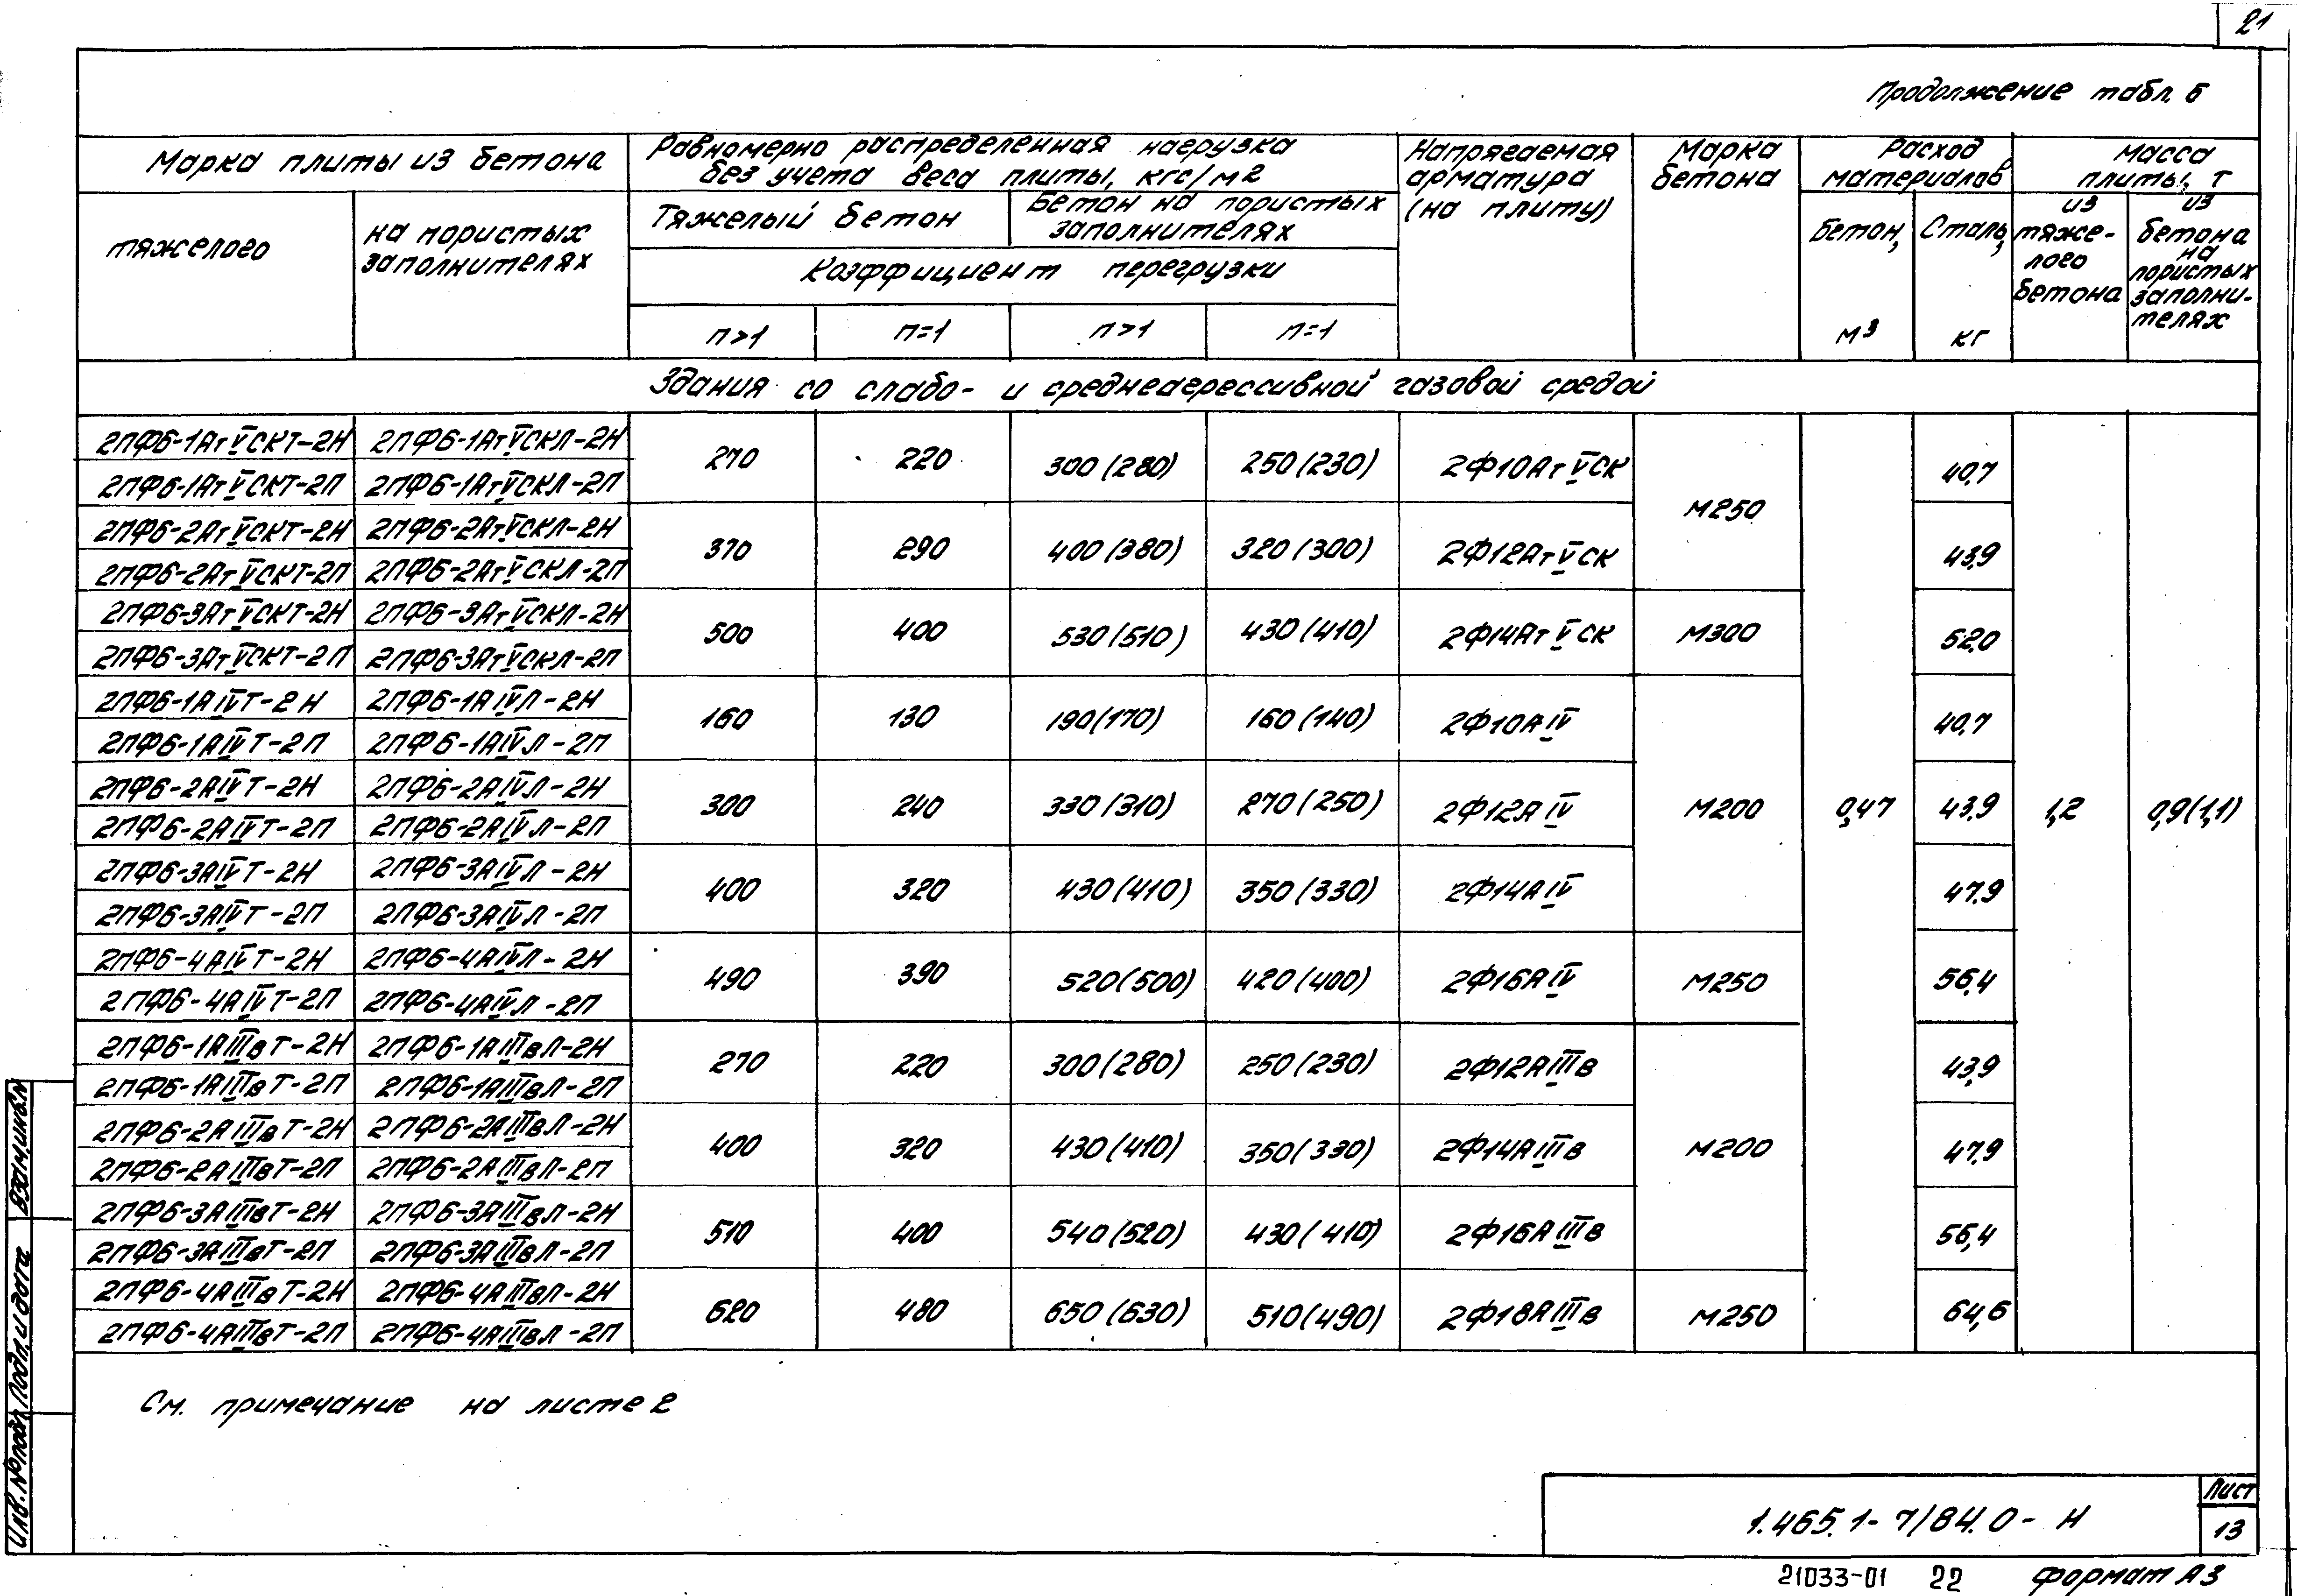 21
Продолжение табл. 6
Марка плиты из бетона
Равномерно распределенная нагрузка
без учета веса плиты, кгс/м2
Напрягаемая
арматура
(на плиту)
Марка
бетона
Расход
материалов
Масса
плиты, т
тяжелого
на пористых
заполнителях
Тяжелый бетон
Бетон на пористых
заполнителях
Коэффициент перегрузки
п>1
п=1
п>1
п=1
Бетон,
м3
Сталь,
кг
из
тяже-
лого
бетона
из
бетона
на
пористых
заполни-
телях
Здания со слабо- и среднеагрессивной газовой средой
2ПФ6-1АтVСКТ-2Н 2ПФ6-1АтVСКЛ-2Н
2ПФ6-1АтVСКТ-2П 2ПФ6-1АтVСКЛ-2П
270 220 300(280) 250(230) 2Ф10АтVСК М250 40,7
2ПФ6-2АтVСКТ-2Н 2ПФ6-2АтVСКЛ-2Н
2ПФ6-2АтVСКТ-2П 2ПФ6-2АтVСКЛ-2П
370 290 400(380) 320(300) 2Ф12АтVСК 43,9
2ПФ6-3АтVСКТ-2Н 2ПФ6-3АтVСКЛ-2Н
2ПФ6-3АтVСКТ-2П 2ПФ6-3АтVСКЛ-2П
500 400 530(510) 430(410) 2Ф14АтVСК М300 52,0
2ПФ6-1АIVТ-2Н 2ПФ6-1АIVЛ-2Н
2ПФ6-1АIVТ-2П 2ПФ6-1АIVЛ-2П
160 130 190(170) 160(140) 2Ф10АIV 40,7
2ПФ6-2АIVТ-2Н 2ПФ6-2АIVЛ-2Н
2ПФ6-2АIVТ-2П 2ПФ6-2АIVЛ-2П
300 240 330(310) 270(250) 2Ф12АIV М200 0,47 43,9 1,2 0,9(1,1)
2ПФ6-3АIVТ-2Н 2ПФ6-3АIVЛ-2Н
2ПФ6-3АIVТ-2П 2ПФ6-3АIVЛ-2П
400 320 430(410) 350(330) 2Ф14АIV 47,9
2ПФ6-4АIVТ-2Н 2ПФ6-4АIVЛ-2Н
2ПФ6-4АIVТ-2П 2ПФ6-4АIVЛ-2П
490 390 520(500) 420(400) 2Ф16АIV М250 56,4
2ПФ6-1АIIIвТ-2Н 2ПФ6-1АIIIвЛ-2Н
2ПФ6-1АIIIвТ-2П 2ПФ6-1АIIIвЛ-2П
270 220 300(280) 250(230) 2Ф12АIIIв 43,9
2ПФ6-2АIIIвТ-2Н 2ПФ6-2АIIIвЛ-2Н
2ПФ6-2АIIIвТ-2П 2ПФ6-2АIIIвЛ-2П
400 320 430(410) 350(330) 2Ф14АIIIв М200 47,9
2ПФ6-3АIIIвТ-2Н 2ПФ6-3АIIIвЛ-2Н
2ПФ6-3АIIIвТ-2П 2ПФ6-3АIIIвЛ-2П
510 400 540(520) 430(410) 2Ф16АIIIв 56,4
2ПФ6-4АIIIвТ-2Н 2ПФ6-4АIIIвЛ-2Н
2ПФ6-4АIIIвТ-2П 2ПФ6-4АIIIвЛ-2П
620 480 650(630) 510(490) 2Ф18АIIIв М250 64,6
См. примечание на листе 2
Инв.№подл. Подп. и дата Взам.инв.№
1.465.1-7/84.0-Н
Лист
13
21033-01 22 формат А3